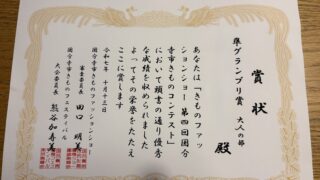 賞状
準グランプリ賞 大人の部
殿
あなたは「きものファッ
ションショー第四回国分
寺市きものコンテスト」
において頭書の通り優秀
な成績を収められました
よってその栄誉をたたえ
ここに賞します
令和七年 十月十三日
国分寺市きものファッションショー
審査委員長 田口 明美
国分寺市きものフェスティバル
大会委員長 熊谷加寿美